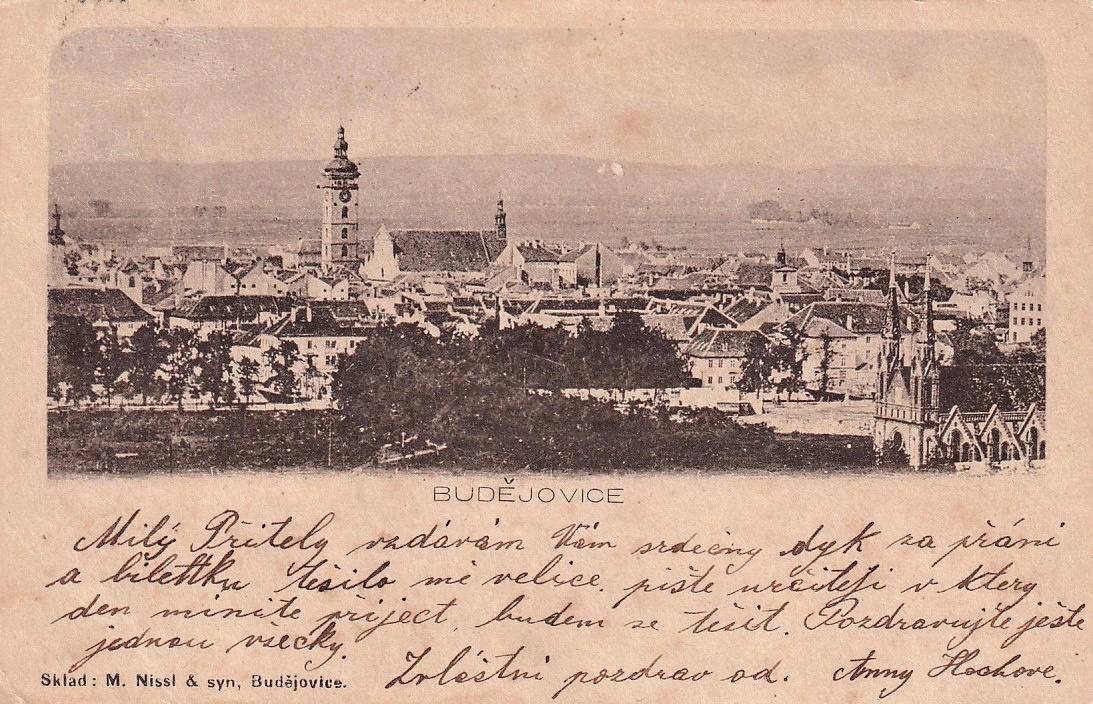 BUDĚJOVICE
Milý Přítely vzdávám Vám srdečny dyk za přáni
a bilettku těšilo mě velice. pište určitěji v ktery
den minite přiject, budem se těšit. Pozdravujte ješte
jednou všecky.
Zvléštni pozdrav od. Anny Hochove.
Sklad: M. Nissl & syn, Budějovice.